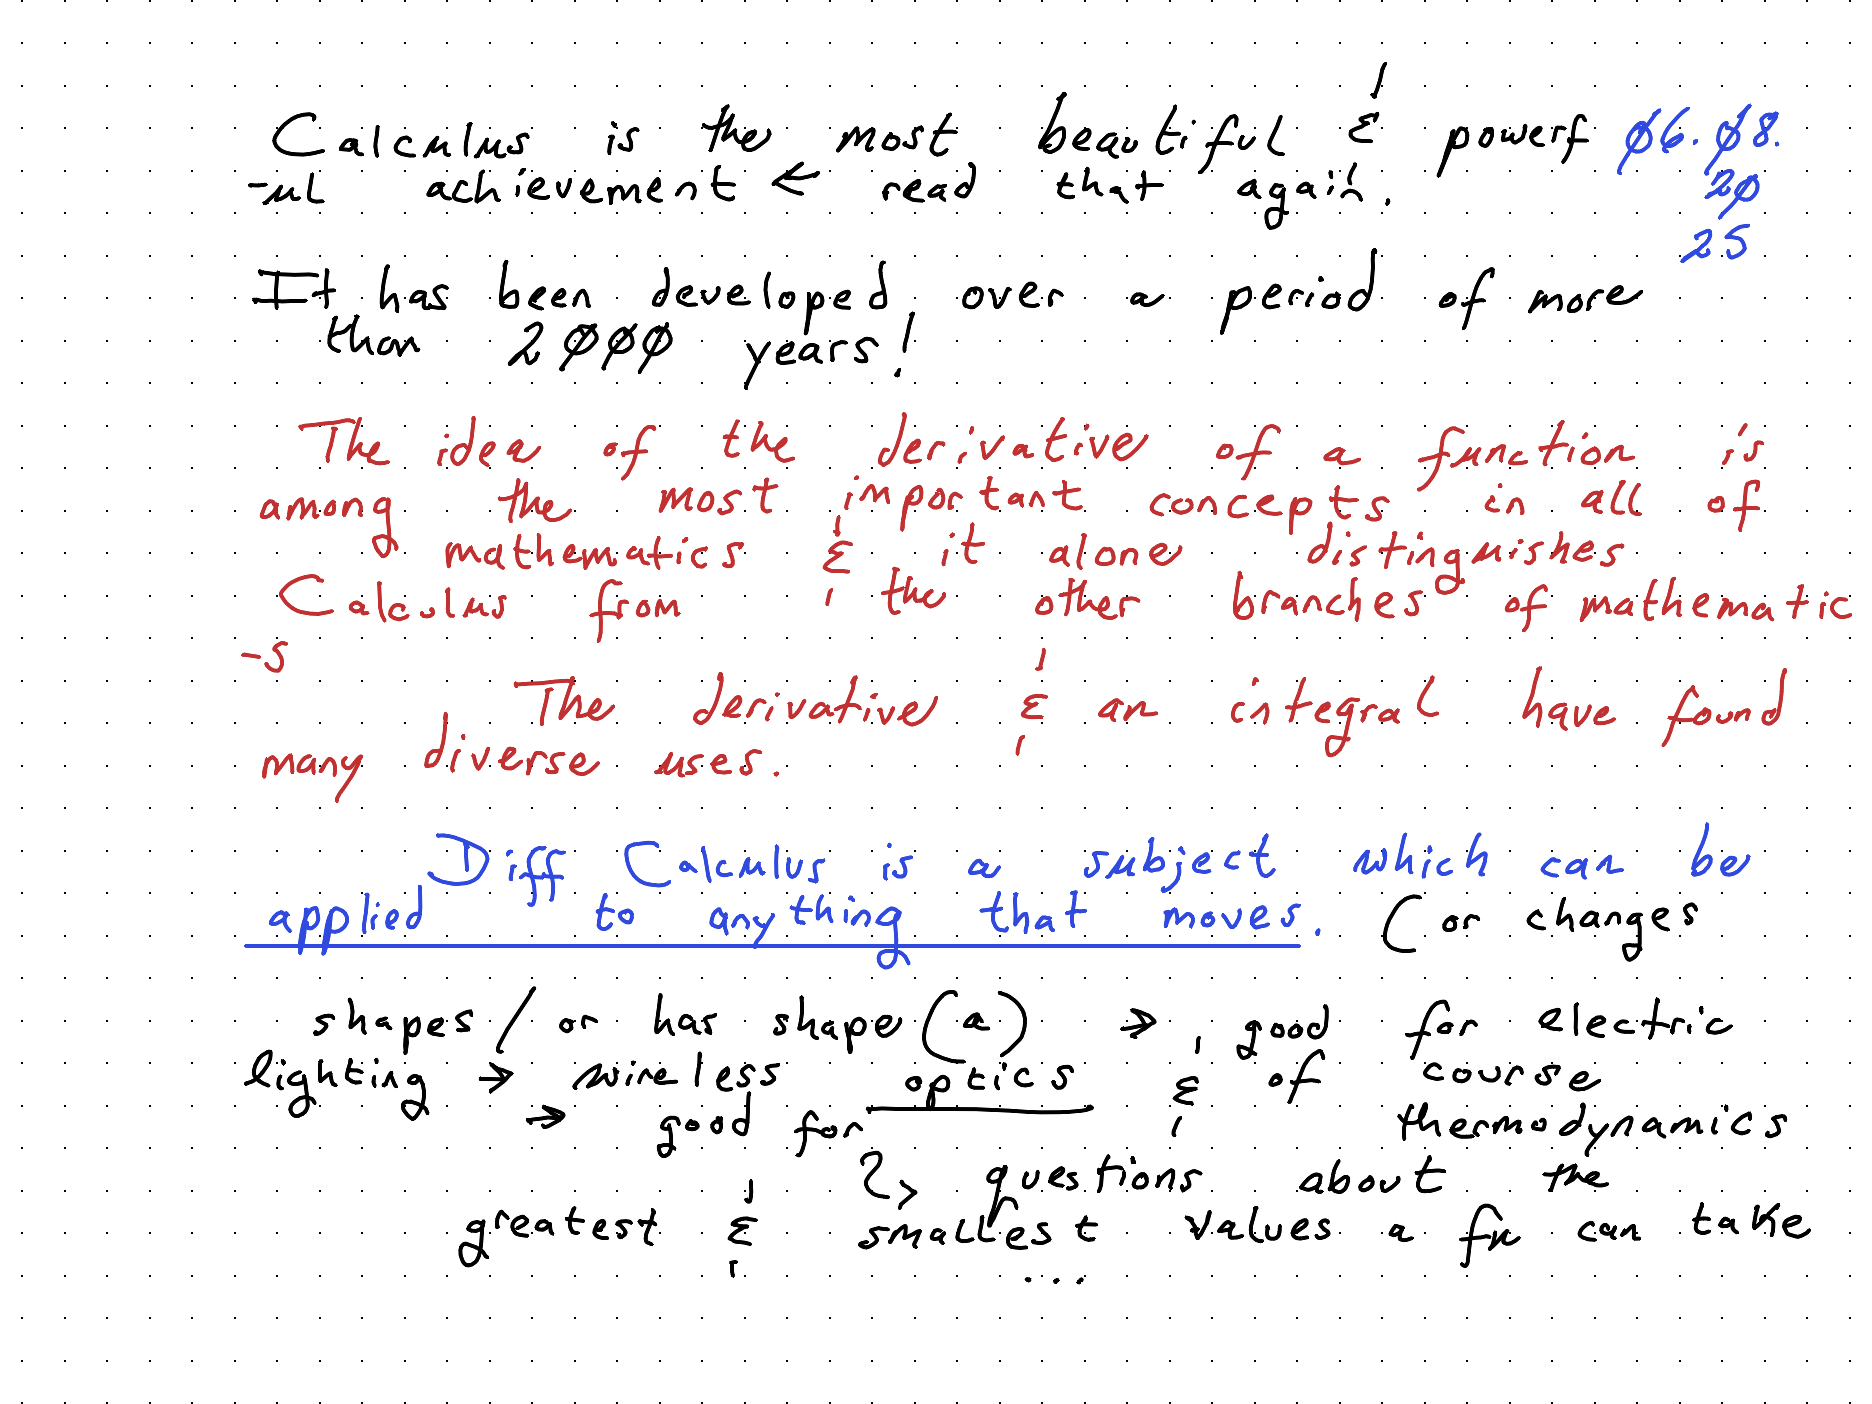 Calculus is the most beautiful & powerf 06.08.
-ul achievement ← read that again. 20
25
It has been developed over a period of more
than 2000 years!
The idea of the derivative of a function is
among the most important concepts in all of
mathematics & it alone distinguishes
Calculus from the other branches of mathematic
-s
The derivative & an integral have found
many diverse uses.
Diff Calculus is a subject which can be
applied to anything that moves. (or changes
shapes / or has shape (a) → good for electric
lighting → wireless optics & of course
→ good for thermodynamics
questions about the
greatest & smallest values a fn can take
...